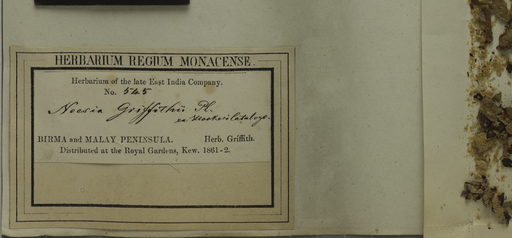 HERBARIUM REGIUM MONACENSE.
Herbarium of the late East India Company.
No. 545
Neesia Griffithii Pl.
BIRMA and MALAY PENINSULA. Herb. Griffith.
Distributed at the Royal Gardens, Kew. 1861-2.